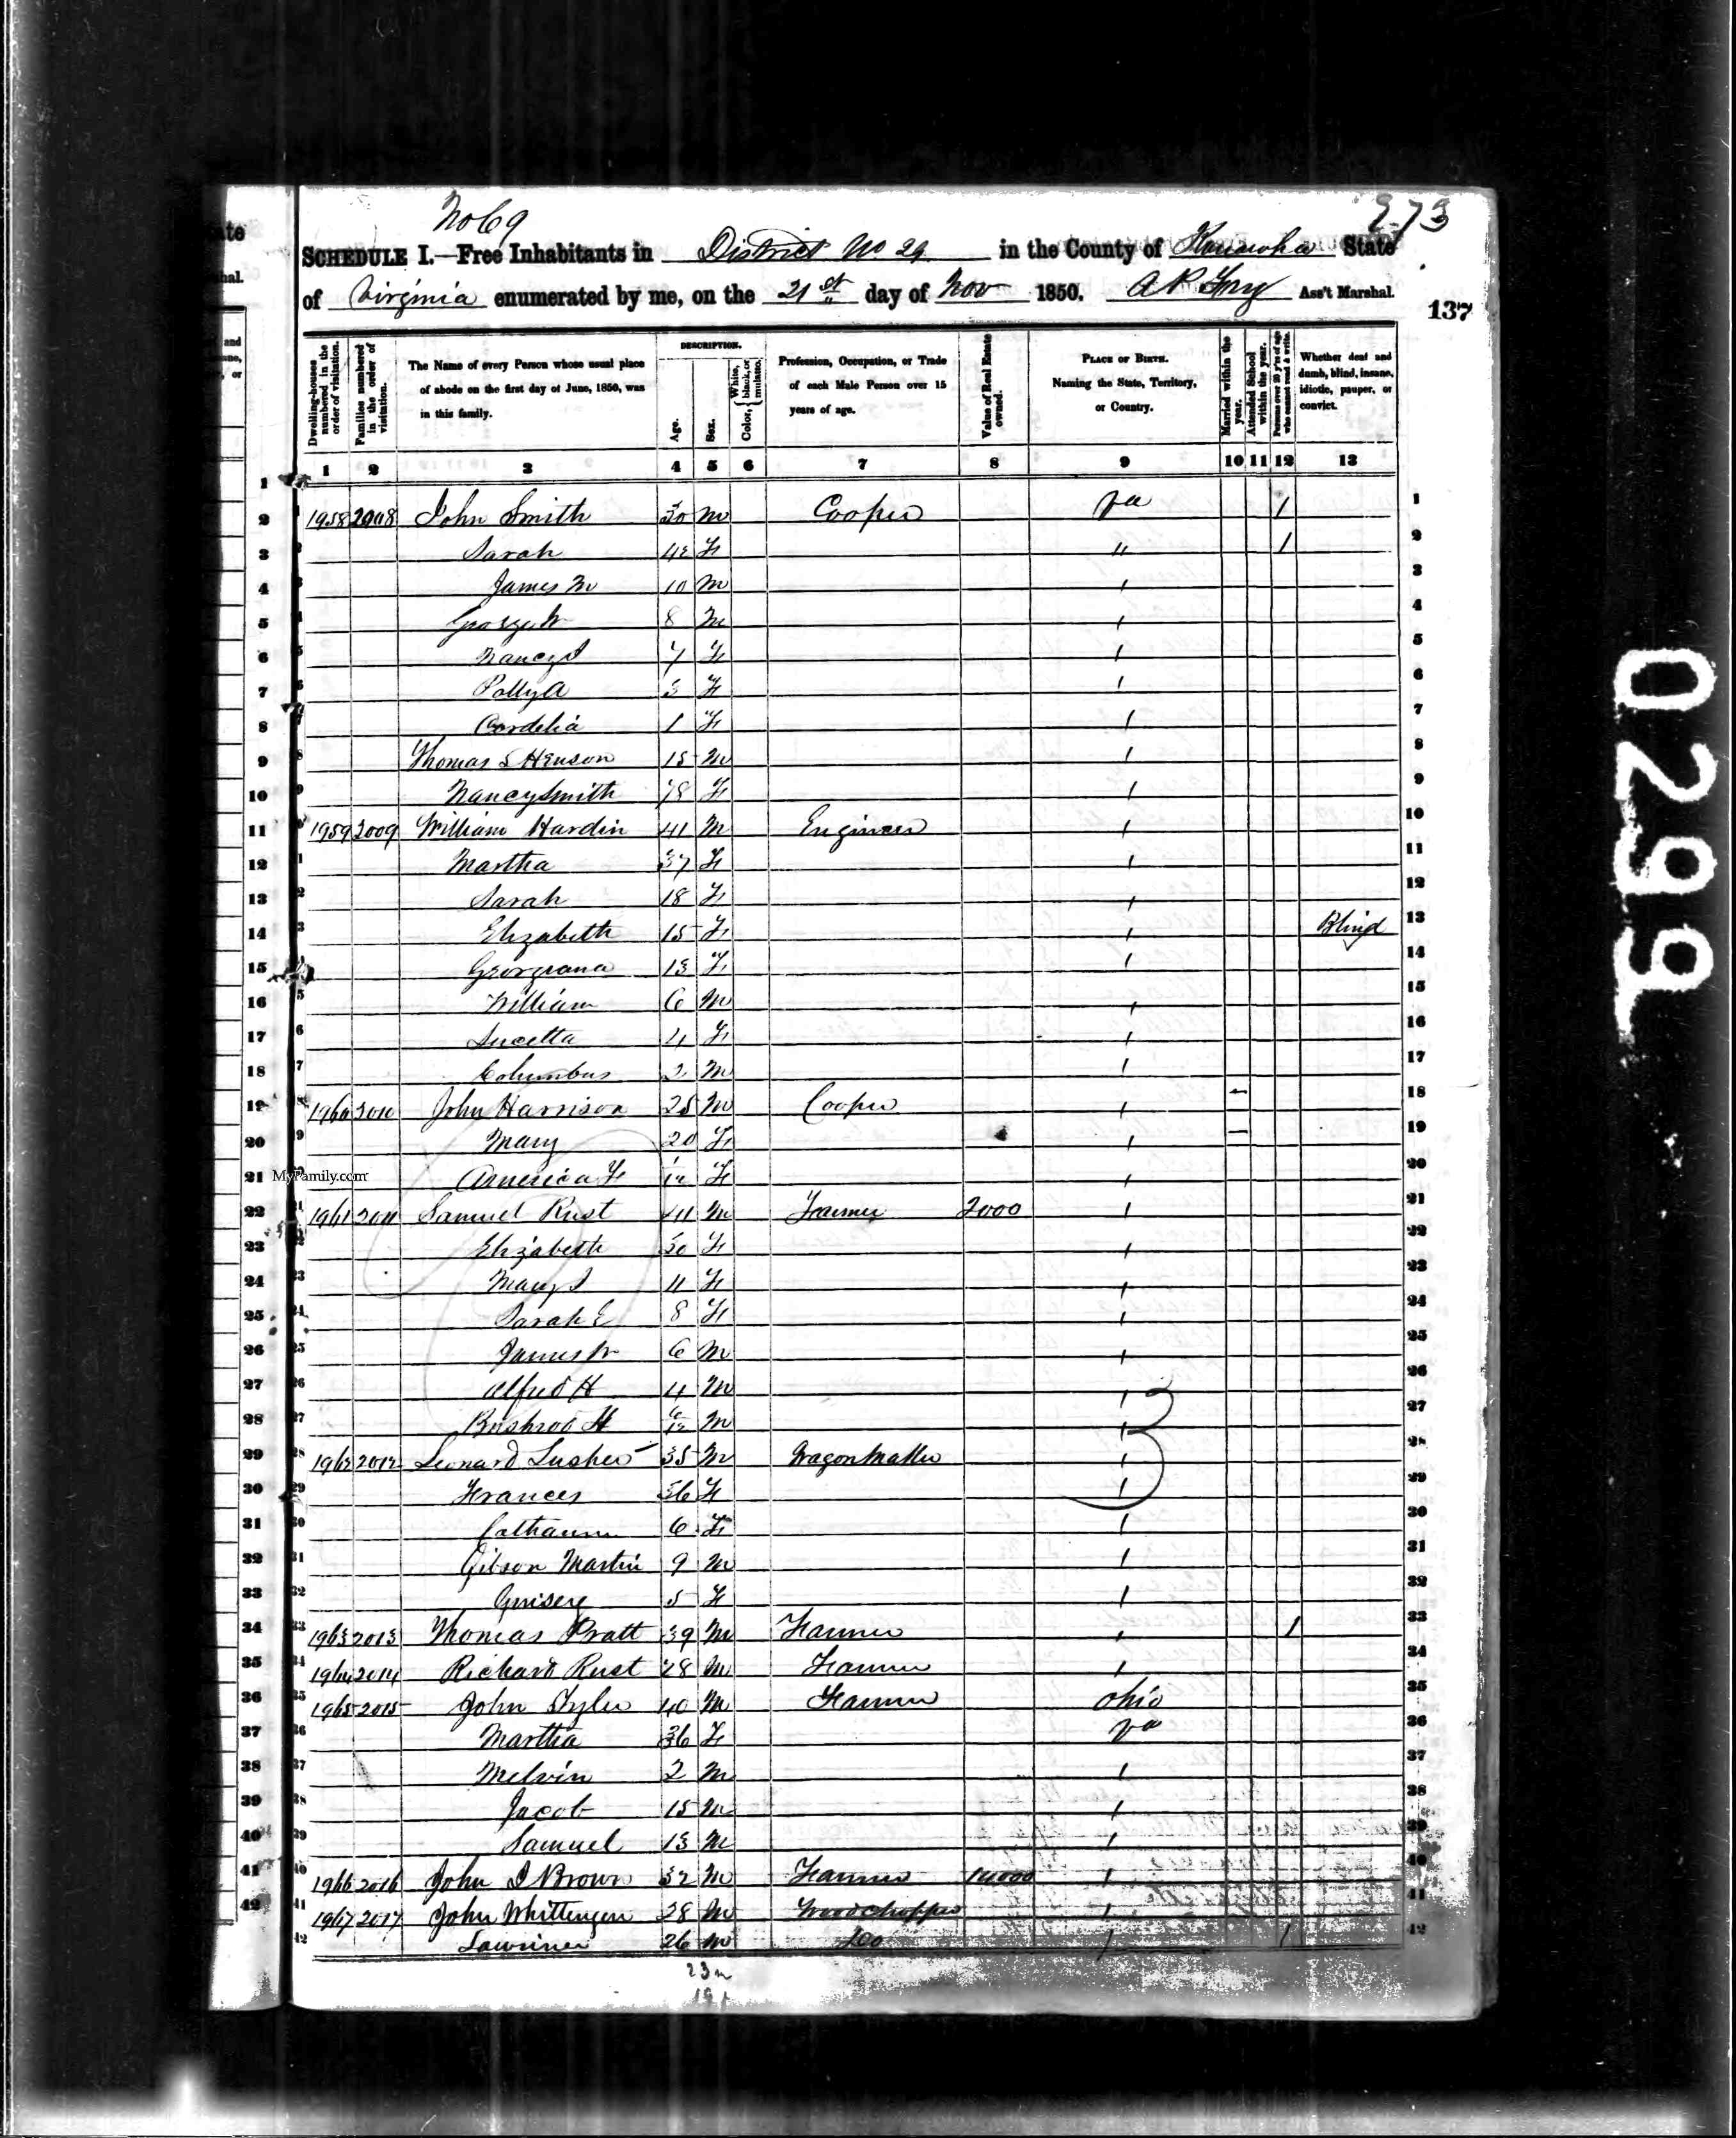 No 69
273
SCHEDULE I.—Free Inhabitants in District No 29 in the County of Kanawha State
of Virginia enumerated by me, on the 21st day of Nov 1850. Ass't Marshal.
137
Dwelling-houses numbered in the order of visitation.
Families numbered in the order of visitation.
The Name of every Person whose usual place of abode on the first day of June, 1850, was in this family.
DESCRIPTION.
Age.
Sex.
Color, { White, black, or mulatto.
Profession, Occupation, or Trade of each Male Person over 15 years of age.
Value of Real Estate owned.
PLACE OF BIRTH. Naming the State, Territory, or Country.
Married within the year.
Attended School within the year.
Persons over 20 y'rs of age who cannot read & write.
Whether deaf and dumb, blind, insane, idiotic, pauper, or convict.
1 2 3 4 5 6 7 8 9 10 11 12 13
1 1958 2008 John Smith 30 M Cooper Va 1
2 Sarah 42 F " 1
3 James M 10 M
4 George W 8 M
5 Nancy J 7 F
6 Polly A 3 F
7 Cordelia 1 F
8 Thomas S Henson 15 M
9 Nancy Smith 78 F
10 1959 2009 William Hardin 41 M Engineer
11 Martha 37 F
12 Sarah 18 F
13 Elizabeth 15 F Blind
14 Georgiana 13 F
15 William 6 M
16 Lucetta 4 F
17 Columbus 2 M
18 1960 2010 John Harrison 25 M Cooper
19 Mary 20 F
20 America F 1/12 F
21 1961 2011 Samuel Rust 41 M Farmer 2000
22 Elizabeth 30 F
23 Mary J 11 F
24 Sarah E 8 F
25 James W 6 M
26 Alfred H 4 M
27 Bushrod H 6/12 M
28 1962 2012 Leonard Lusher 35 M Wagon Maker
29 Frances 36 F
30 Catharine 6 F
31 Gibson Martin 9 M
32 5 F
33 1963 2013 Thomas Pratt 39 M Farmer 1
34 1964 2014 Richard Rust 28 M Farmer
35 1965 2015 John Tyler 40 M Farmer Ohio
36 Martha 36 F Va
37 Melvin 2 M
38 Jacob 15 M
39 Samuel 13 M
40 1966 2016 John D Brown 32 M Farmer 14000
41 1967 2017 John Whittengen 28 M Woodchopper
42 26 M Do 1
23 m
19 f
MyFamily.com
0299